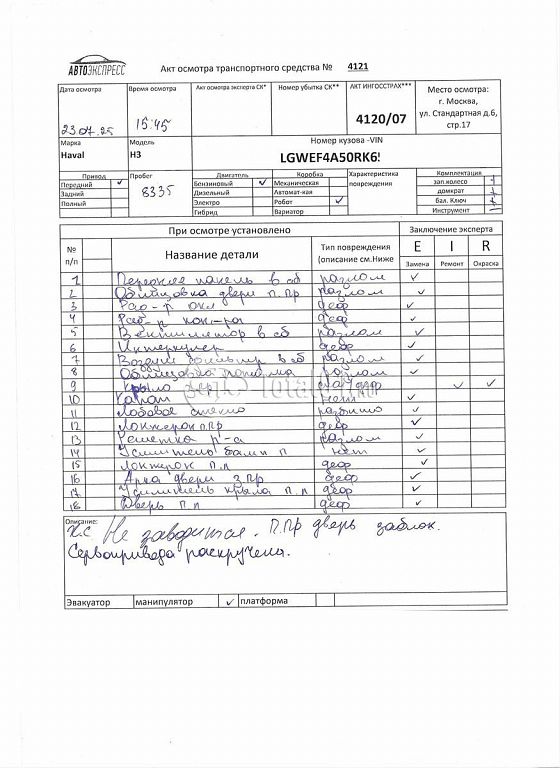 АВТОЭКСПРЕСС
Акт осмотра транспортного средства № 4121
Дата осмотра
Время осмотра
Акт осмотра эксперта СК*
Номер убытка СК**
АКТ ИНГОССТРАХ***
Место осмотра:
г. Москва,
ул. Стандартная д.6,
стр.17
23.07.25
15:45
4120/07
Марка
Модель
Номер кузова -VIN
Haval
H3
LGWEF4A50RK6!
Привод
Пробег
Двигатель
Коробка
Характеристика повреждения
Комплектация
Передний ✓
8335
Бензиновый ✓
Механическая
зап.колесо
Задний
Дизельный
Автомат-кая
домкрат
Полный
Электро
Робот ✓
бал. Ключ
Гибрид
Вариатор
Инструмент –
При осмотре установлено
Заключение эксперта
№ п/п
Название детали
Тип повреждения (описание см.Ниже
E I R
Замена Ремонт Окраска
1 Передняя панель в сб разлом ✓
2 Облицовка двери п.пр разлом ✓
3 Рад-р охл деф ✓
4 Рад-р кон-ра деф ✓
5 Вентилятор в сб разлом ✓
6 Интеркулер деф ✓
7 Воздуш фильтр в сб разлом ✓
8 Облицовка разлом ✓
9 Крыло деф ✓ ✓
10 Капот нет ✓
11 Лобовое стекло разбито ✓
12 Лонжерон п.пр деф ✓
13 Решетка р-а разлом ✓
14 Усилитель бамп п нет ✓
15 Лонжерон п.л деф ✓
16 Арка двери з.пр деф ✓
17 Усилитель крыла п.л деф ✓
18 Дверь п.л деф ✓
Описание:
Х.с Не заводится. П.пр дверь заблок.
Сервопривода раскручены.
Эвакуатор манипулятор ✓ платформа